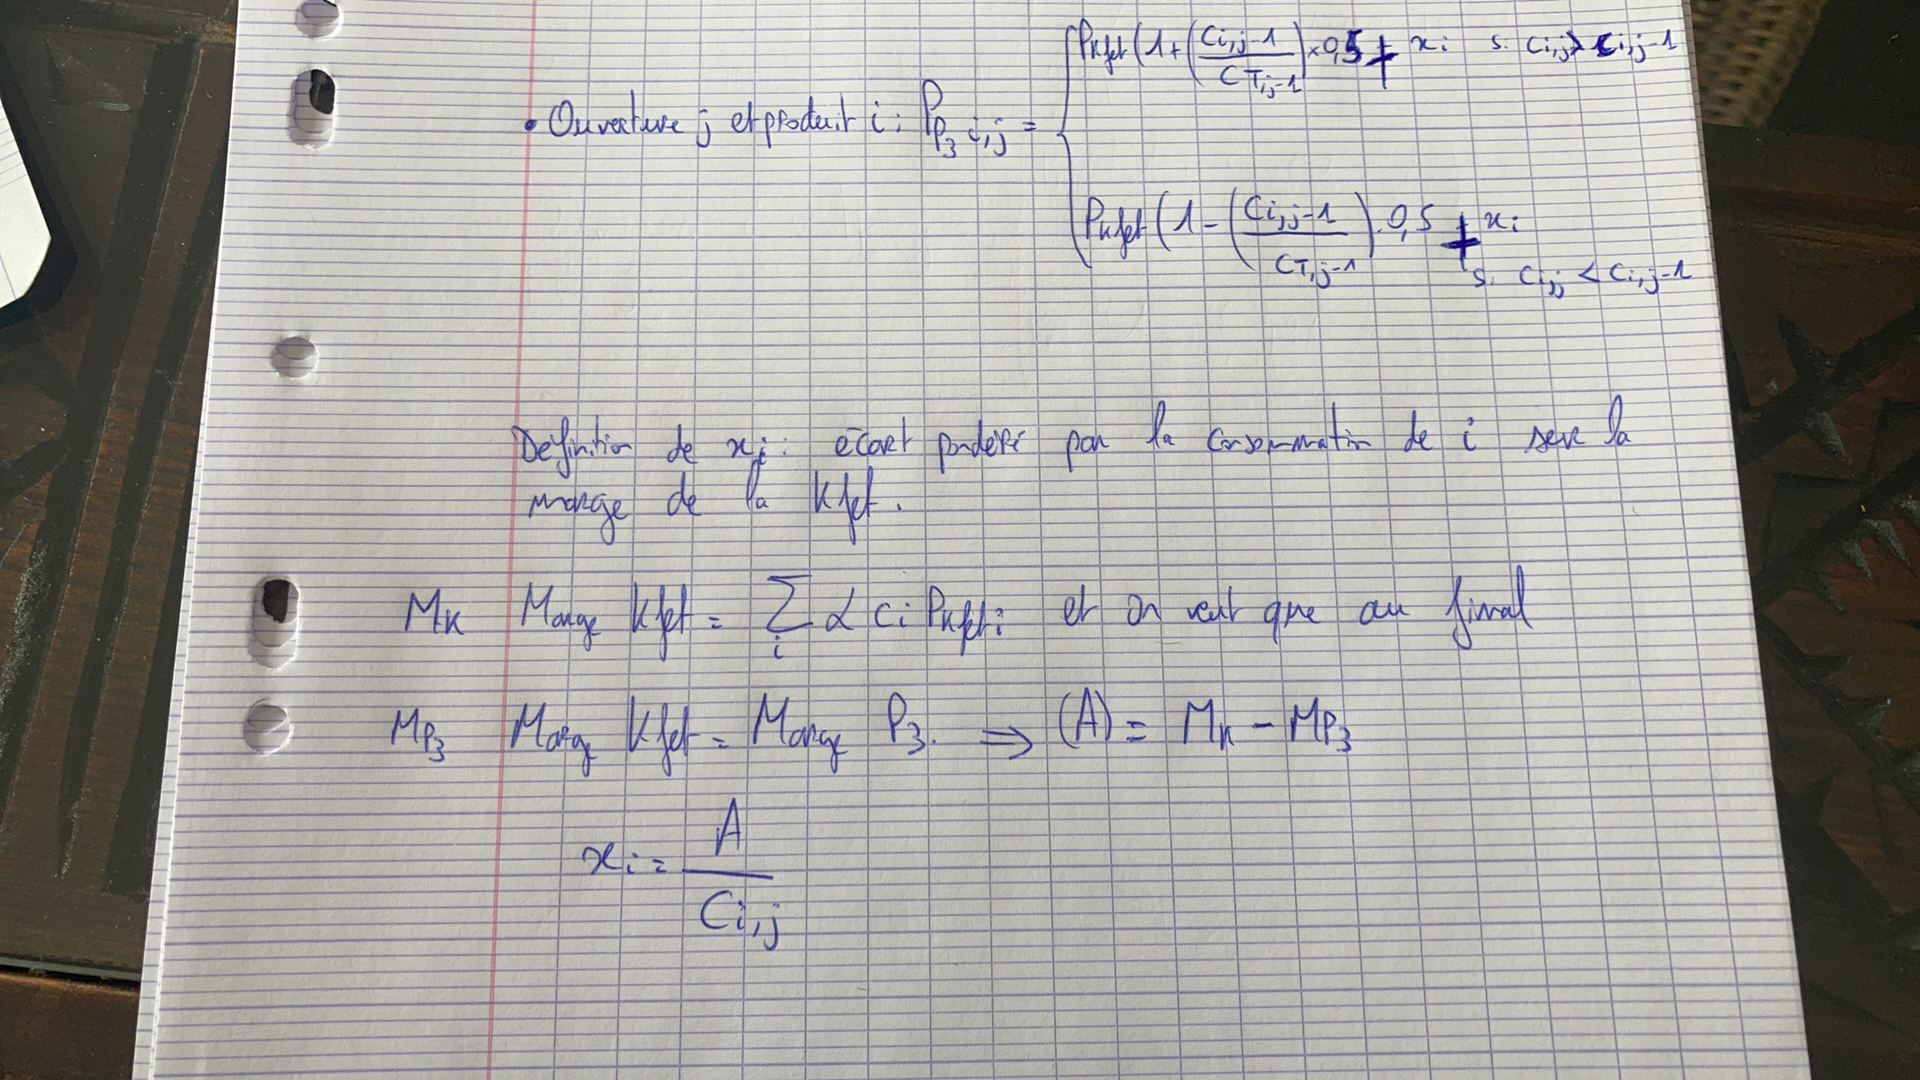 Pkfet (1 + (Ci,j-1 / CT,j-1) × 0,5 + xi si Ci,j > Ci,j-1
• Ouverture j et produit i : PP3 i,j =
Pkfet (1 - (Ci,j-1 / CT,j-1) . 0,5 + xi
si Ci,j < Ci,j-1
Définition de xi : écart pondéré par la consommation de i sur la
marge de la Kfet.
MK Marge Kfet = ∑i α Ci Pkfet i et on veut que au final
MP3 Marge Kfet = Marge P3. ⇒ (A) = MK - MP3
xi = A / Ci,j